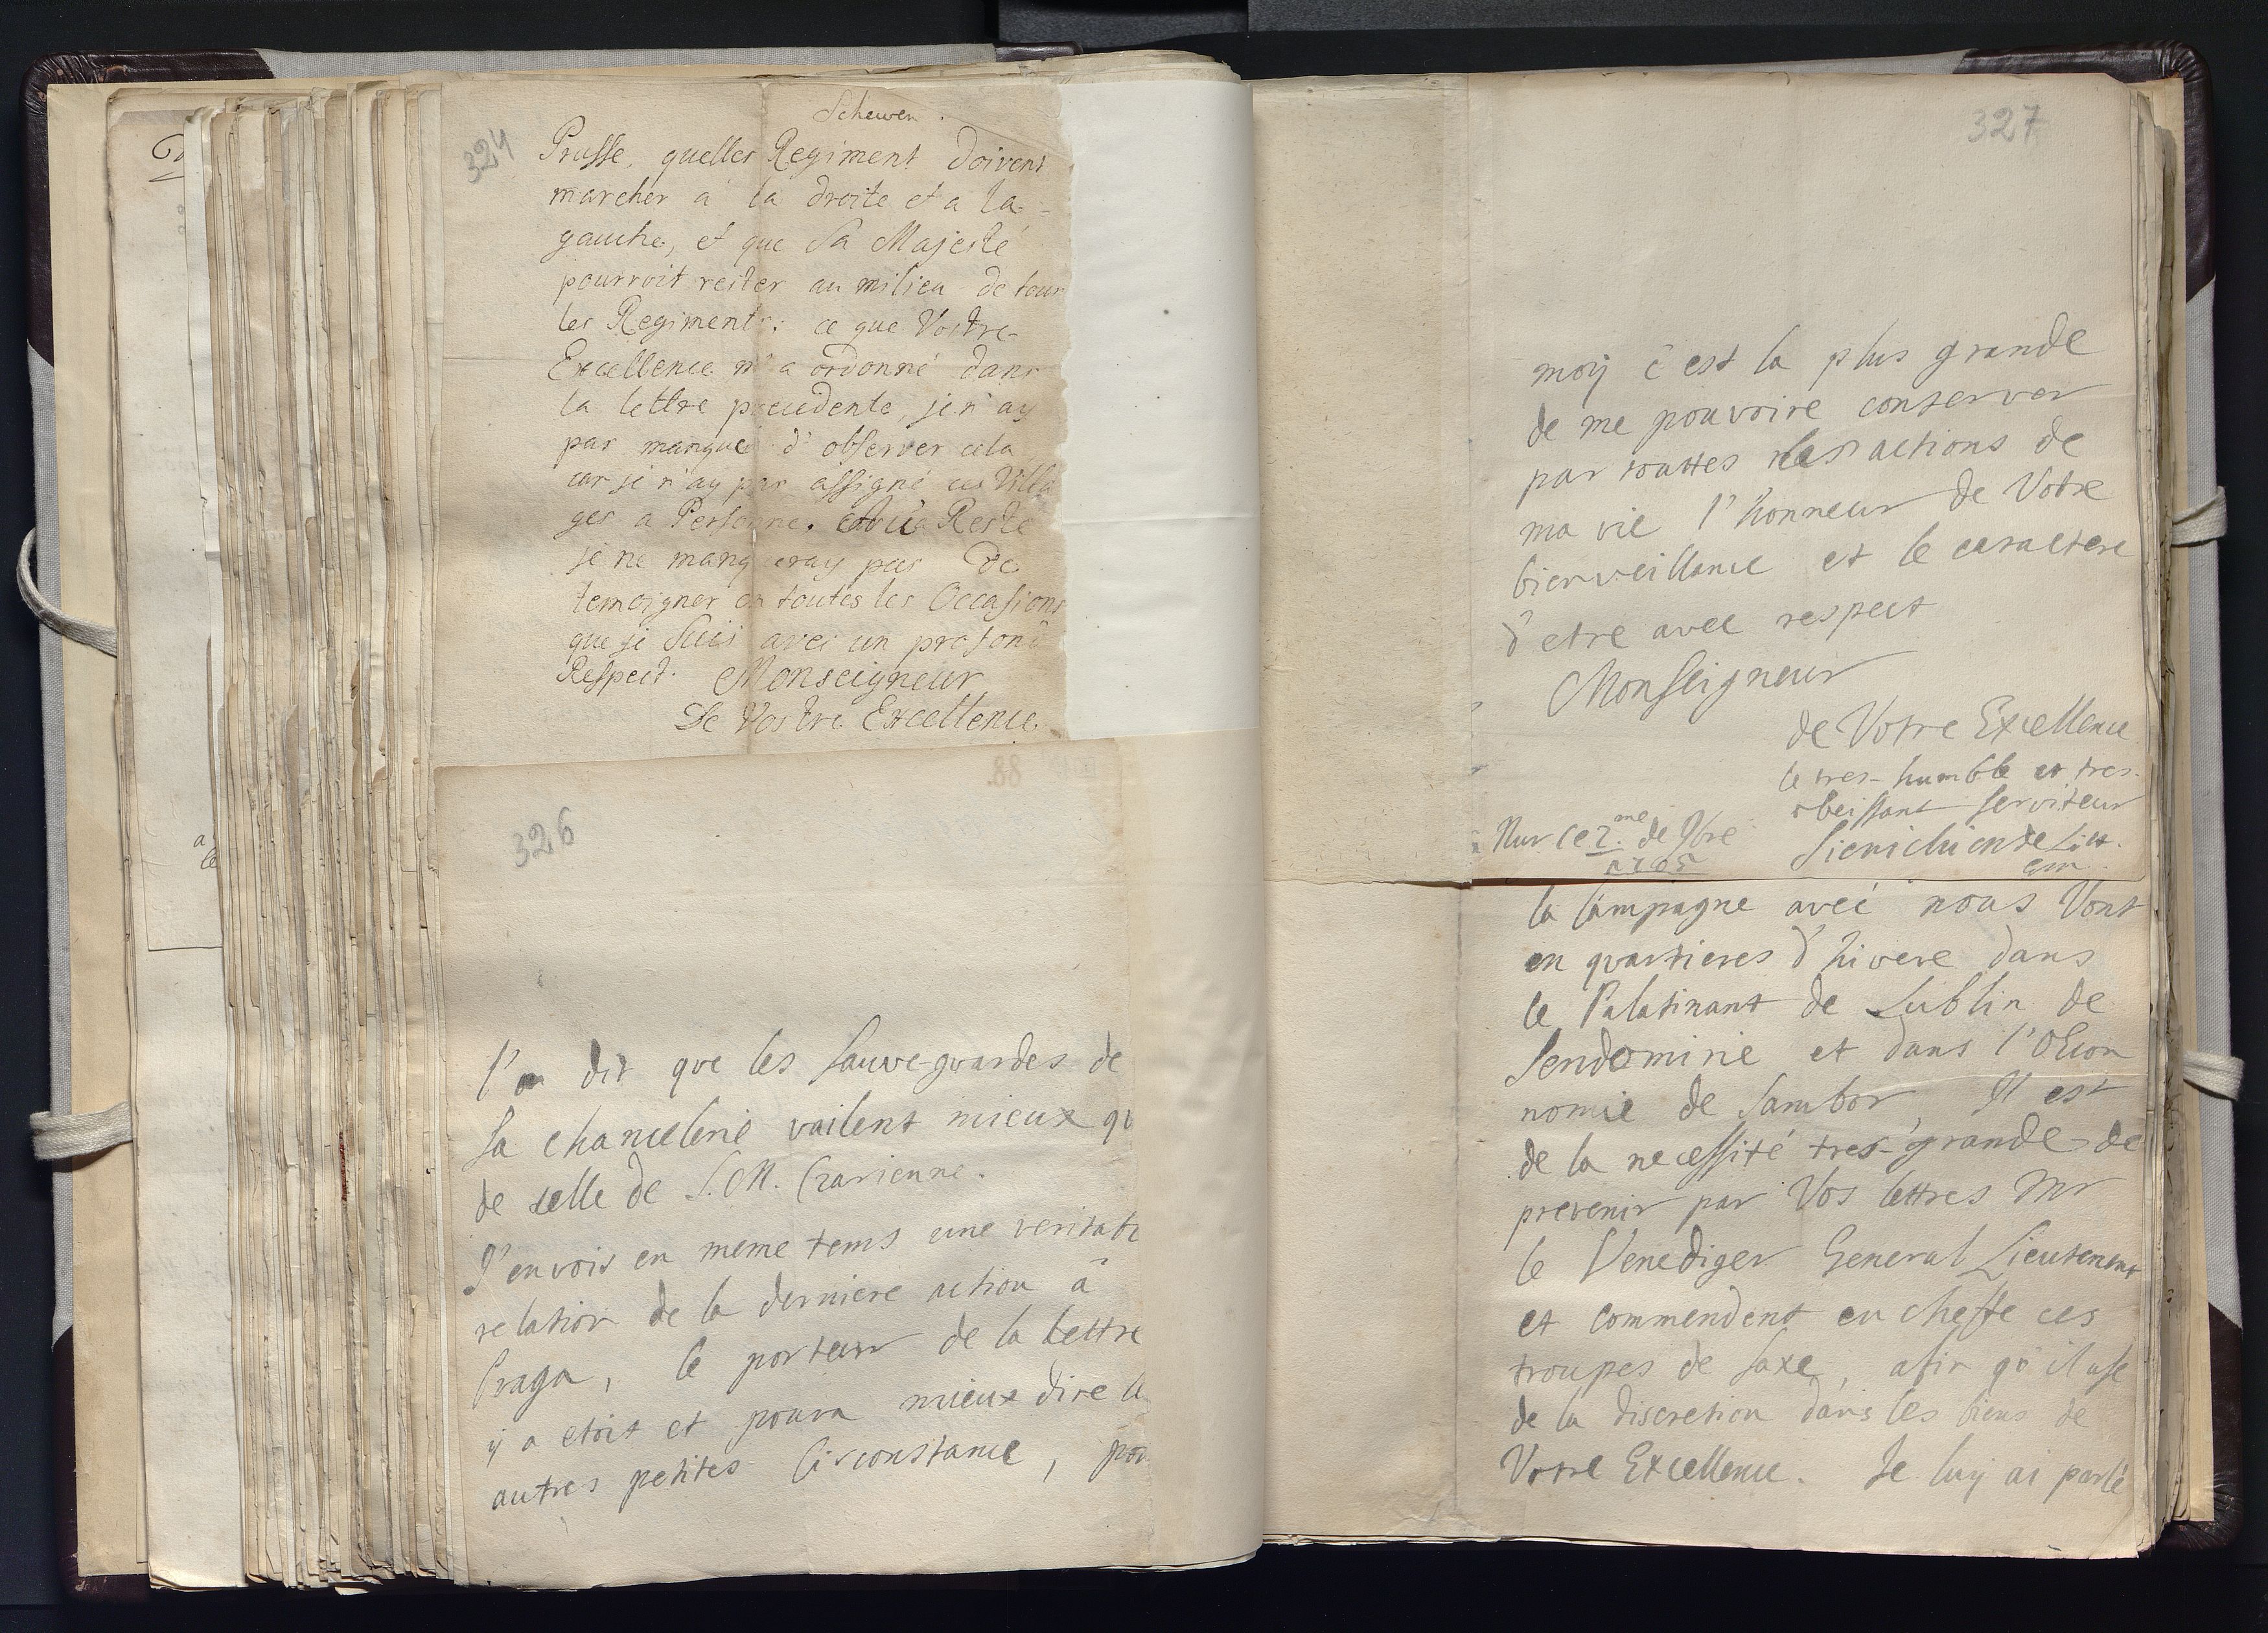 324
Schewen.
Prusse, quelles Regiment doivent
marcher a la droite et a la
gauche, et que Sa Majesté
pourroit rester au milieu de tour
les Regiments: ce que Vostre
Excellence m'a ordonné dans
la lettre precedente, je n'ay
pas manqué d'observer cela
car je n'ay pas assigné ces Villa
ges a Personne. Reste
je ne manqueray pas de
temoigner en toutes les Occasions
que je suis avec un profond
Respect. Monseigneur
De Vostre Excellence
88.
326
l'on dit que les Sauve-guardes de
sa chancelerie vailent mieux qu
de celle de S. M. Czarienne.
J'envois en meme tems une veritab
relation de la derniere action à
Praga, le porteur de la lettre
ÿ a etoit et poura mieux dire le
autres petites Circonstance, pou
327
moÿ c'est la plus grande
de me pouvoire conserver
par touttes les actions de
ma vie l'honneur de Votre
bienveillance et le caractere
d'etre avec respect
Monseigneur
de Votre Excellence
le tres-humble et tres-
obeissant serviteur
Nur ce 2.me de 9bre
1705
la campagne avec nous Vont
en quartieres d'hivere dans
le Palatinant de Lublin de
Sendomirie et dans l'Oecon
nomie de Sambor, Il est
de la necessité tres-grande de
prevenir par Vos lettres Mr
le Venediger General Lieutenent
et commendent en cheffe ces
troupes de Saxe, afin qu'il use
de la discretion dans les biens de
Votre Excellence. Je luÿ ai parlé